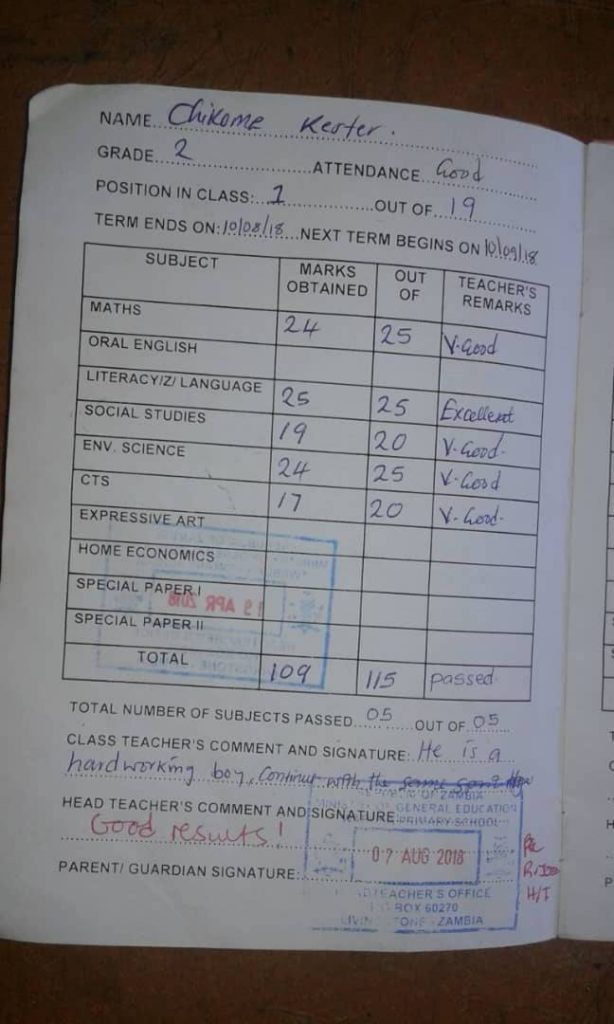 NAME Chikome Kester.
GRADE 2 ATTENDANCE Good
POSITION IN CLASS: 1 OUT OF 19
TERM ENDS ON: 10/08/18 NEXT TERM BEGINS ON 10/09/18
SUBJECT MARKS OBTAINED OUT OF TEACHER'S REMARKS
MATHS 24 25 V. Good
ORAL ENGLISH
LITERACY/Z/ LANGUAGE 25 25 Excellent
SOCIAL STUDIES 19 20 V. Good.
ENV. SCIENCE 24 25 V. Good
CTS 17 20 V. Good.
EXPRESSIVE ART
HOME ECONOMICS
SPECIAL PAPER I
19 APR 2018
SPECIAL PAPER II
TOTAL 109 115 passed.
TOTAL NUMBER OF SUBJECTS PASSED 05 OUT OF 05
CLASS TEACHER'S COMMENT AND SIGNATURE: He is a
hardworking boy, Continue with the same
HEAD TEACHER'S COMMENT AND SIGNATURE:
Good results!
PARENT/ GUARDIAN SIGNATURE:
OF ZAMBIA
MINISTRY OF GENERAL EDUCATION
PRIMARY SCHOOL
07 AUG 2018
HEADTEACHER'S OFFICE
P.O BOX 60270
LIVINGSTONE - ZAMBIA
H/T